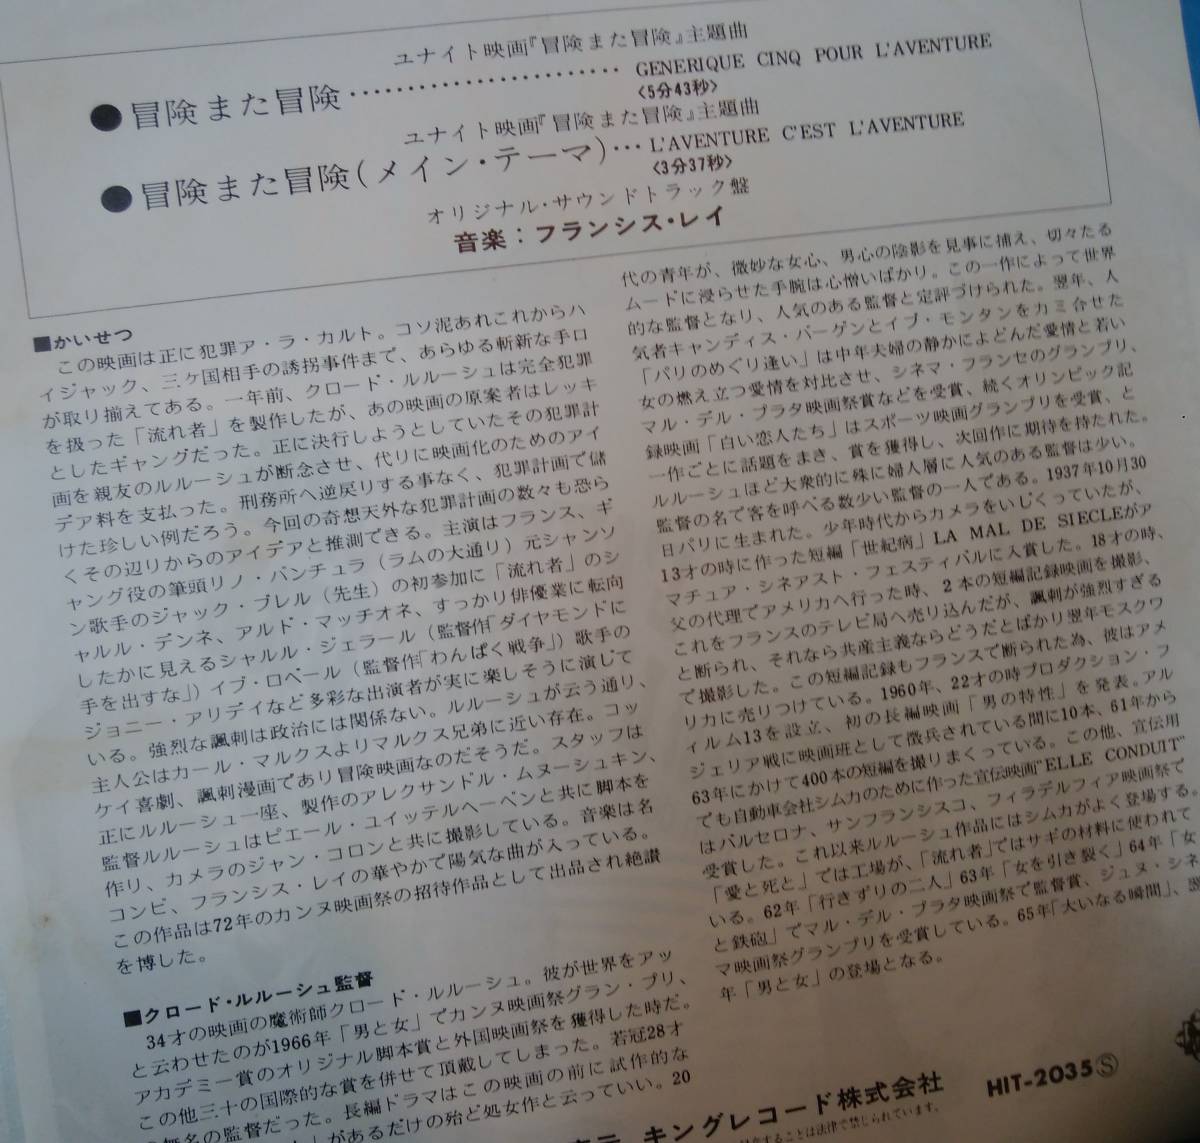 ユナイト映画『冒険また冒険』主題曲
●冒険また冒険…………………GENERIQUE CINQ POUR L'AVENTURE
〈5分43秒〉
ユナイト映画『冒険また冒険』主題曲
●冒険また冒険(メイン・テーマ)…L'AVENTURE C'EST L'AVENTURE
〈3分37秒〉
オリジナル・サウンドトラック盤
音楽：フランシス・レイ
■かいせつ
この映画は正に犯罪ア・ラ・カルト。コソ泥あれこれからハ
イジャック、三ケ国相手の誘拐事件まで、あらゆる斬新な手口
が取り揃えてある。一年前、クロード・ルルーシュは完全犯罪
を扱った「流れ者」を製作したが、あの映画の原案者はレッキ
としたギャングだった。正に決行しようとしていたその犯罪計
画を親友のルルーシュが断念させ、代りに映画化のためのアイ
デア料を支払った。刑務所へ逆戻りする事なく、犯罪計画で儲
けた珍しい例だろう。今回の奇想天外な犯罪計画の数々も恐ら
くその辺りからのアイデアと推測できる。主演はフランス、ギ
ャング役の筆頭リノ・バンチュラ（ラムの大通り）元シャンソ
ン歌手のジャック・ブレル（先生）の初参加に「流れ者」のシ
ャルル・デンネ、アルド・マッチオネ、すっかり俳優業に転向
したかに見えるシャルル・ジェラール（監督作「ダイヤモンドに
手を出すな」）イブ・ロベール（監督作「わんぱく戦争」）歌手の
ジョニー・アリデイなど多彩な出演者が実に楽しそうに演じて
いる。強烈な諷刺は政治には関係ない。ルルーシュが云う通り、
主人公はカール・マルクスよりマルクス兄弟に近い存在。コッ
ケイ喜劇、諷刺漫画であり冒険映画なのだそうだ。スタッフは
正にルルーシュ一座、製作のアレクサンドル・ムヌーシュキン、
監督ルルーシュはピエール・ユイッテルヘーベンと共に脚本を
作り、カメラのジャン・コロンと共に撮影している。音楽は名
コンビ、フランシス・レイの華やかで陽気な曲が入っている。
この作品は72年のカンヌ映画祭の招待作品として出品され絶讃
を博した。
■クロード・ルルーシュ監督
34才の映画の魔術師クロード・ルルーシュ。彼が世界をアッ
と云わせたのが1966年「男と女」でカンヌ映画祭グラン・プリ、
アカデミー賞のオリジナル脚本賞と外国映画祭を獲得した時だ。
この他三十の国際的な賞を併せて頂戴してしまった。若冠28才
の無名の監督だった。長編ドラマはこの映画の前に試作的な
」があるだけの殆ど処女作と云っていい。20
代の青年が、微妙な女心、男心の陰影を見事に捕え、切々たる
ムードに浸らせた手腕は心憎いばかり。この一作によって世界
的な監督となり、人気のある監督と定評づけられた。翌年、人
気者キャンディス・バーゲンとイブ・モンタンをカミ合せた
「パリのめぐり逢い」は中年夫婦の静かによどんだ愛情と若い
女の燃え立つ愛情を対比させ、シネマ・フランセのグランプリ、
マル・デル・プラタ映画祭賞などを受賞、続くオリンピック記
録映画「白い恋人たち」はスポーツ映画グランプリを受賞、と
一作ごとに話題をまき、賞を獲得し、次回作に期待を持たれた。
ルルーシュほど大衆的に殊に婦人層に人気のある監督は少い。
監督の名で客を呼べる数少い監督の一人である。1937年10月30
日パリに生まれた。少年時代からカメラをいじくっていたが、
13才の時に作った短編「世紀病」LA MAL DE SIECLEがア
マチュア・シネアスト・フェスティバルに入賞した。18才の時、
父の代理でアメリカへ行った時、2本の短編記録映画を撮影、
これをフランスのテレビ局へ売り込んだが、諷刺が強烈すぎる
と断られ、それなら共産主義ならどうだとばかり翌年モスクワ
で撮影した。この短編記録もフランスで断られた為、彼はアメ
リカに売りつけている。1960年、22才の時プロダクション・フ
ィルム13を設立、初の長編映画「男の特性」を発表。アル
ジェリア戦に映画班として徴兵されている間に10本、61年から
63年にかけて400本の短編を撮りまくっている。この他、宣伝用
でも自動車会社シムカのために作った宣伝映画"ELLE CONDUIT"
はバルセロナ、サンフランシスコ、フィラデルフィア映画祭で
受賞した。これ以来ルルーシュ作品にはシムカがよく登場する。
「愛と死と」では工場が、「流れ者」ではサギの材料に使われて
いる。62年「行きずりの二人」63年「女を引き裂く」64年「女
と鉄砲」でマル・デル・プラタ映画祭で監督賞、ジュヌ・シネ
マ映画祭グランプリを受賞している。65年「大いなる瞬間」、翌
年「男と女」の登場となる。
キングレコード株式会社 HIT-2035Ⓢ
することは法律で禁じられています。